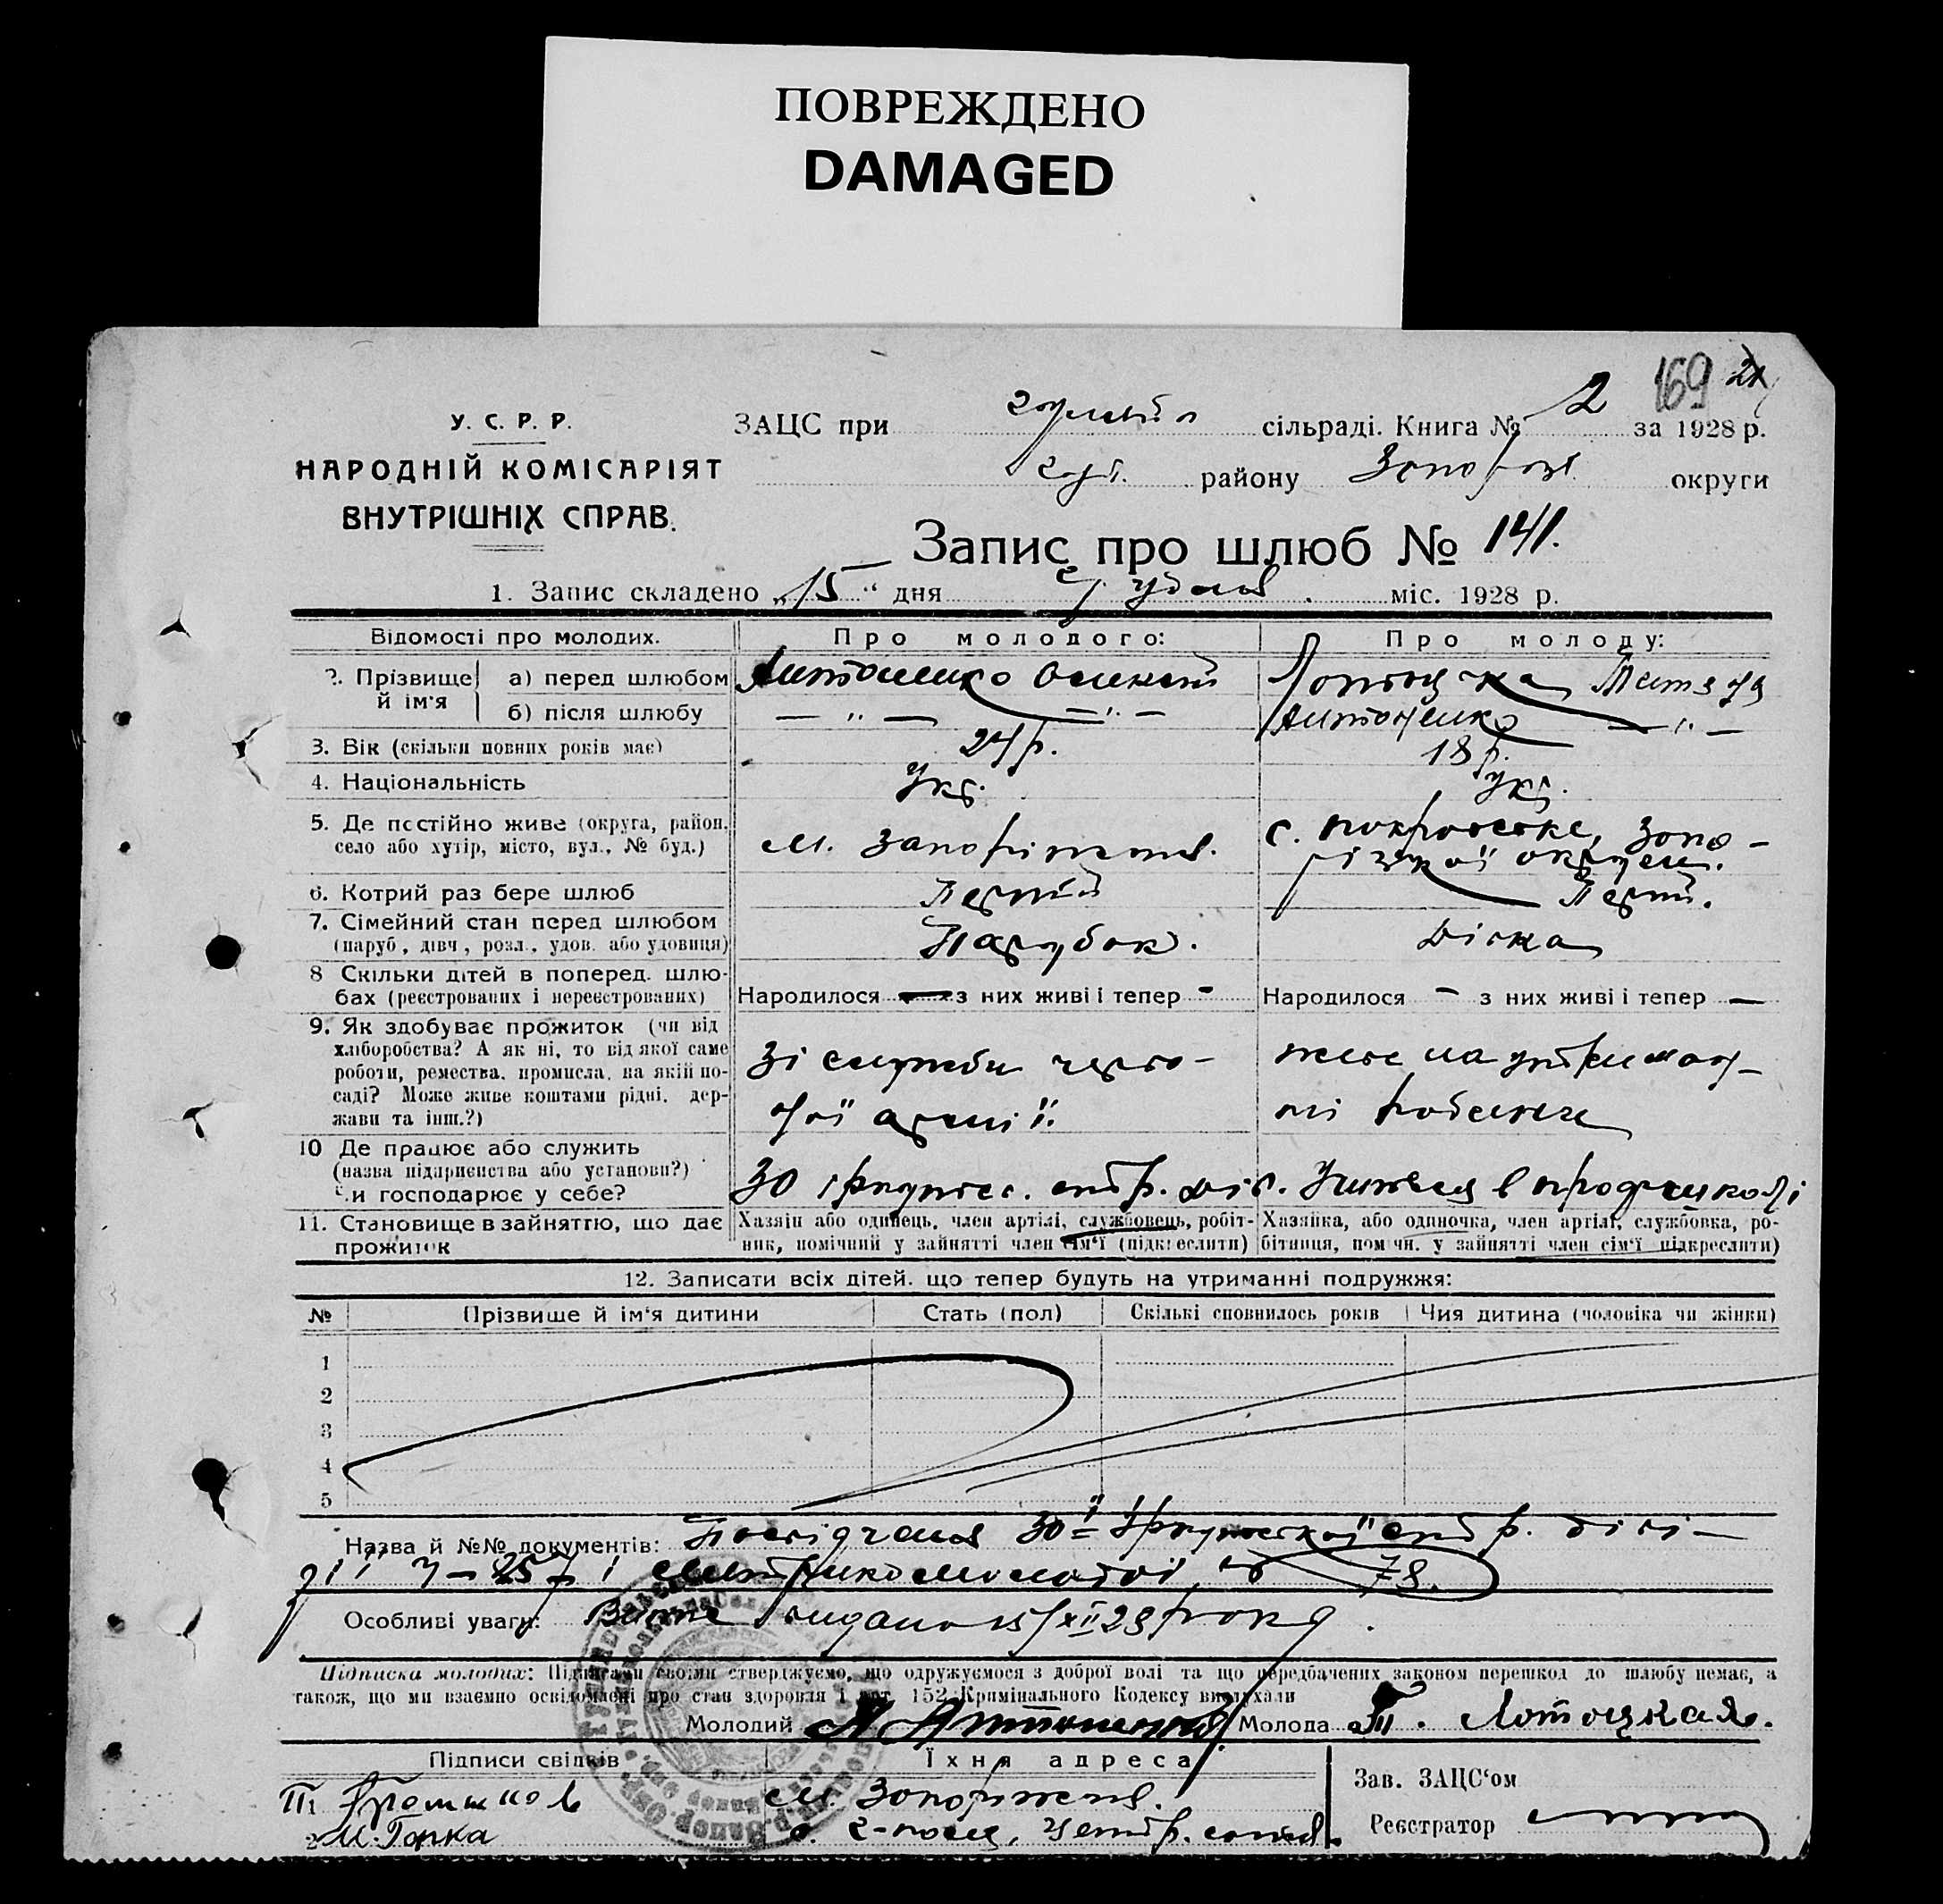 ПОВРЕЖДЕНО
DAMAGED
169
У. С. Р. Р.
НАРОДНІЙ КОМІСАРІЯТ
ВНУТРІШНІХ СПРАВ.
ЗАЦС при сільраді. Книга № 2 за 1928 р.
району округи
Запис про шлюб № 141.
1. Запис складено „15“ дня грудня міс. 1928 р.
Відомості про молодих. Про молодого: Про молоду:
2. Прізвище й ім'я а) перед шлюбом Антоненко Олексій
б) після шлюбу — „ — — „ — Антоненко — „ —
3. Вік (скільки повних років має) 24 р. 18 р.
4. Національність Укр. Укр.
5. Де постійно живе (округа, район, село або хутір, місто, вул., № буд.) м. Запоріжжя. с. Покровське, Запо-
різької округи.
6. Котрий раз бере шлюб Перший Перший.
7. Сімейний стан перед шлюбом (паруб., дівч., розл., удов. або удовиця) Парубок. Дівка
8 Скільки дітей в поперед. шлю-
бах (реєстрованих і нереєстрованих) Народилося — з них живі і тепер - Народилося - з них живі і тепер —
9. Як здобуває прожиток (чи від
хліборобства? А як ні, то від якої саме
роботи, ремества, промисла, на якій по-
саді? Може живе коштами рідні, дер-
жави та інш.?)
Зі служби черво-
ної армії.
живе на утриман-
ні
10 Де працює або служить
(назва підприємства або установи?)
Чи господарює у себе?
30 Іркутськ. стр. див. Учиться в профшколі
11. Становище в зайняттю, що дає
прожиток
Хазяїн або одинець, член артілі, службовець, робіт-
ник, помічний у зайнятті член сім'ї (підкреслити)
Хазяйка, або одиночка, член артілі, службовка, ро-
бітниця, помічн. у зайнятті член сім'ї підкреслити)
12. Записати всіх дітей, що тепер будуть на утриманні подружжя:
№ Прізвище й ім'я дитини Стать (пол) Скількі сповнилось років Чия дитина (чоловіка чи жінки)
1
2
3
4
5
Назва й №№ документів: Посвідчення 30ї Іркутської стр. диві-
зії
78.
Особливі уваги: року.
Підписка молодих: Підписами своїми стверджуємо, що одружуємося з доброї волі та що передбачених законом перешкод до шлюбу немає, а
також, що ми взаємно освідомлені про стан здоровля і арт. 152 Кримінального Кодексу вислухали
Молодий А. Антоненко Молода Т. Лотоцкая.
Підписи свідків Їхня адреса
м. Запоріжжя.
2 М. Горка
Зав. ЗАЦС'ом
Реєстратор